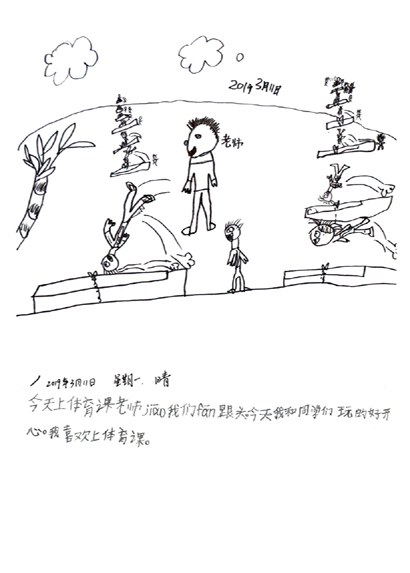 2019 3月11日
老师
2019年3月11日 星期一 晴
今天上体育课老师jiao我们fān跟头今天我和同学们玩的好开
心。我喜欢上体育课。